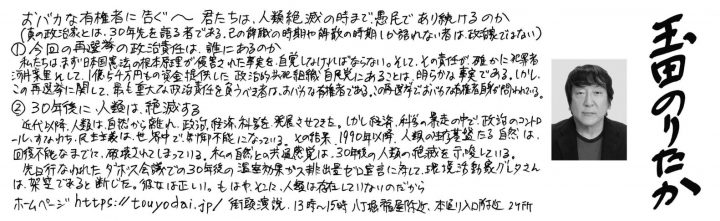 おバカな有権者に告ぐ〜 君たちは、人類絶滅の時まで愚民であり続けるのか
(真の政治家とは、30年先を語る者である。己の解散の時期や解散の時期しか語れない者は、政治家ではない)
① 今回の再選挙の政治責任は、誰にあるのか
私たちは、まず日本国憲法の根本原理が侵害された事実を、自覚しなければならない。そして、その責任が、確かに犯罪者
河井案里として、1億5千万もの資金提供した政治的共犯組織自民党にあることは、明らかな事実である。しかし、
この再選挙に関して、最も重大な政治責任を負うべき者は、おバカな有権者である。この再選挙でおバカな有権者自身が問われている。
② 30年後に、人類は、絶滅する
近代以降、人類は、自然から離れ、政治、経済、科学を発展させてきた。しかし経済、科学の暴走の中で、政治のコントロ
ール、すなわち、民主主義は、世界中で、制御不能になっている。その結果、1990年以降、人類の生存基盤たる自然は、
回復不能なまでに、破壊されてしまっている。私の自然との共通感覚は、30年後の人類の絶滅を示唆している。
先日行なわれたダボス会議での30年後の温室効果ガス排出量ゼロ宣言に対して、環境活動家グレタさん
は、架空であると断じた。彼女は正しい。もはや、そこに、人類は存在していないのだから
ホームページ https://touyodai.jp/ 街頭演説、13時〜15時 八丁堀福屋付近、本通り入口付近 2ヶ所
玉田のりたか